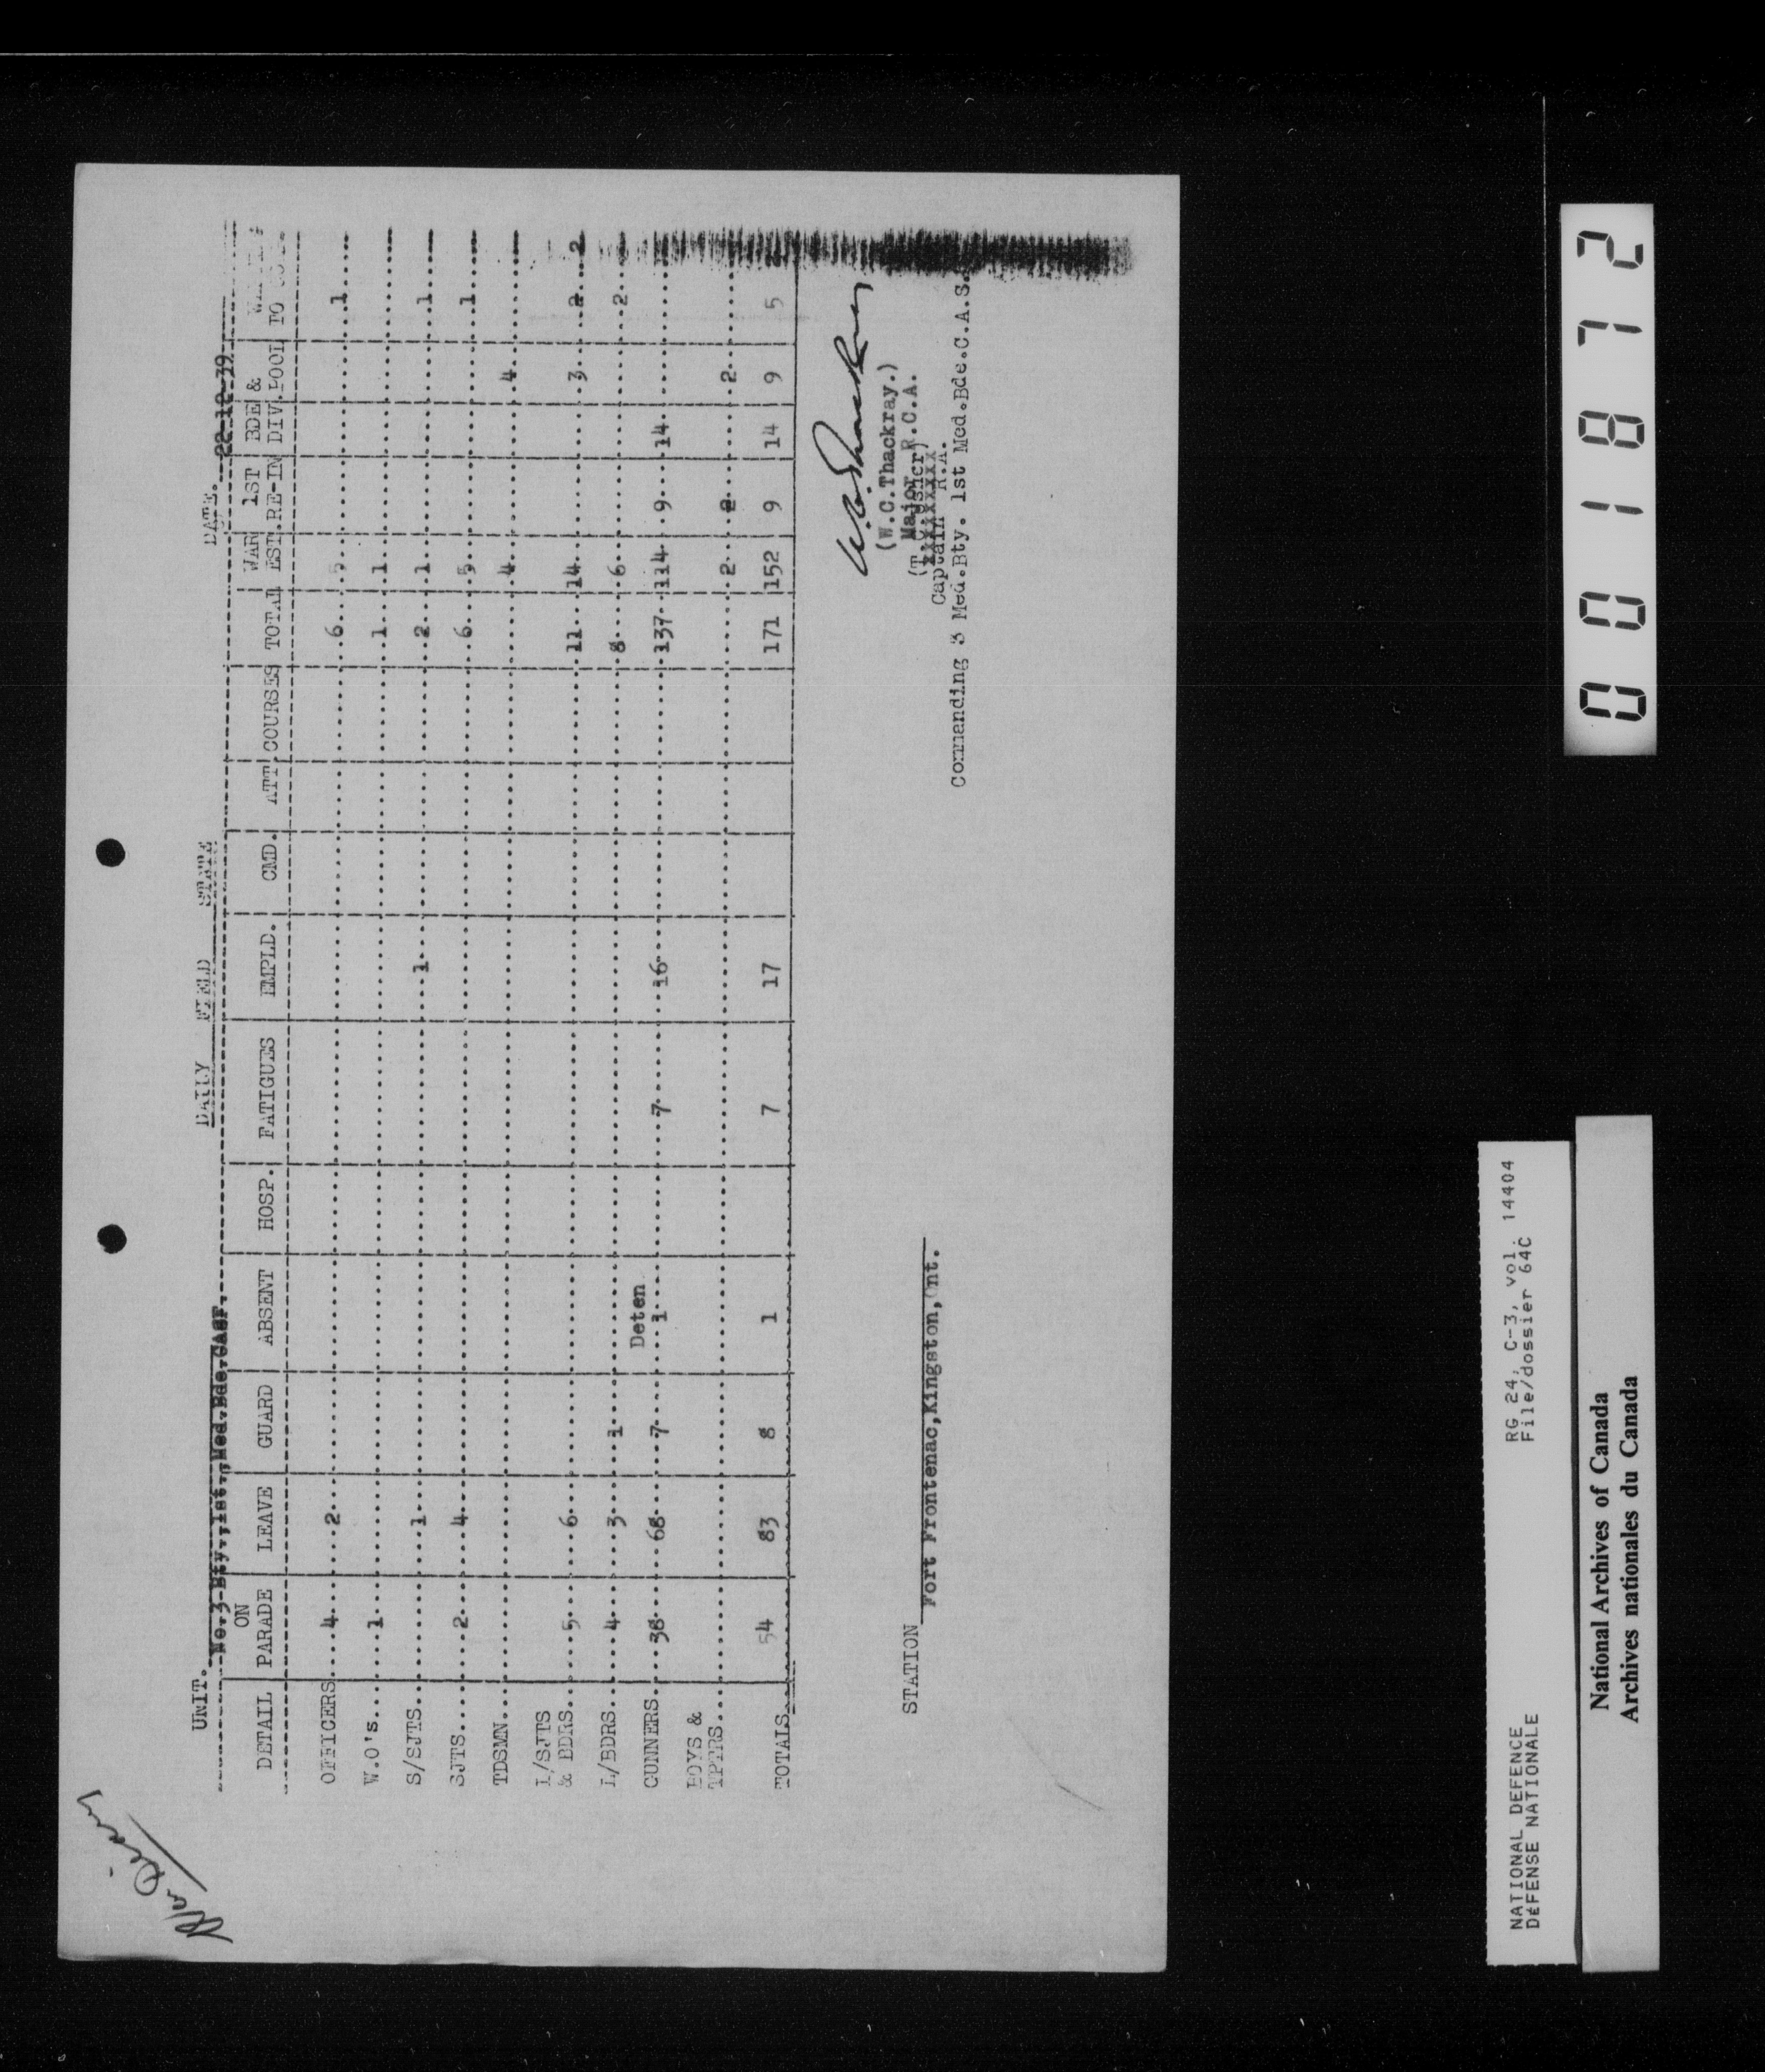 War Diary
DAILY FIELD STATE
UNIT. No.3 Bty.,1st.,Med.Bde.CASF. DATE. 22-12-39
DETAIL ON PARADE LEAVE GUARD ABSENT HOSP. FATIGUES EMPLD. CMD. ATT COURSES TOTAL WAR EST. 1ST RE-IN BDE & DIV. POOL TO
OFFICERS 4 2 6 5 1
W.O's 1 1 1
S/SJTS 1 1 2 1 1
SJTS 2 4 6 5 1
TDSMN 4 4
L/SJTS
& BDRS 5 6 11 14 3 2 2
L/BDRS 4 3 1 8 6 2
Deten
GUNNERS 38 68 7 1 7 16 137 114 9 14
BOYS &
TPTRS 2 2 2
TOTALS 54 83 8 1 7 17 171 152 9 14 9 5
(W.C.Thackray.)
Major R.C.A.
Captain R.A.
Commanding 3 Med.Bty. 1st Med.Bde.C.A.S.
STATION Fort Frontenac,Kingston,Ont.
0 0 1 8 7 2
NATIONAL DEFENCE RG 24, C-3, vol. 14404
DÉFENSE NATIONALE File/dossier 64C
National Archives of Canada
Archives nationales du Canada